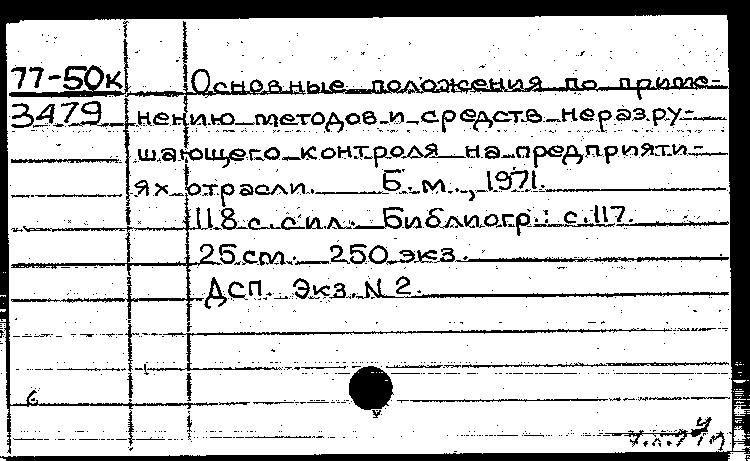 77-50к Основные положения по приме-
3479 нению методов и средств неразру-
шающего контроля на предприяти-
ях отрасли. Б.м., 1971.
118 с. с ил. Библиогр.: с. 117.
25 см. 250 экз.
ДСП. Экз. N 2.